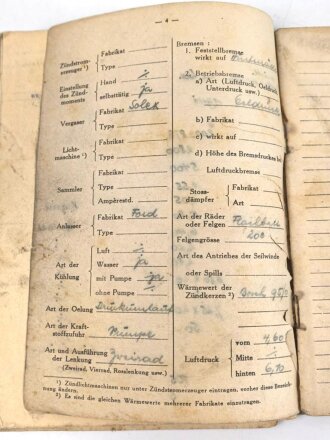 — 4 —
Zündstrom-
erzeuger ¹)
Fabrikat
Type
Einstellung
des Zünd-
moments
Hand ÷
selbsttätig ja
Vergaser
Fabrikat Solex
Type
Licht-
maschine ¹)
Fabrikat
Type
Sammler
Fabrikat
Type
Ampèrestd.
Anlasser
Fabrikat Ford
Type
Art der
Kühlung
Luft ÷
Wasser ja
mit Pumpe ja
ohne Pumpe ÷
Art der Oelung Druckumlauf
Art der Kraft-
stoffzufuhr Pumpe
Art und Ausführung
der Lenkung Zweirad
(Zweirad, Vierrad, Rosslenkung usw.)
Bremsen:
1. Feststellbremse
wirkt auf
2. Betriebsbremse
a) Art (Luftdruck, Oeldruck
Unterdruck usw.) Oeldruck
b) Fabrikat
c) wirkt auf
d) Höhe des Bremsdruckes bei
Luftdruckbremse
Stoss-
dämpfer
Fabrikat
Art
Art der Räder
oder Felgen
Felgengrösse
Art des Antriebes der Seilwinde
oder Spills
Wärmewert der
Zündkerzen ²) Bosch
Luftdruck
vom
Mitte ÷
hinten
¹) Zündlichtmaschinen nur unter Zündstromerzeuger eintragen, vorher diese Bezeich-
nung ändern.
²) Es sind die gleichen Wärmewerte mehrerer Fabrikate einzutragen.